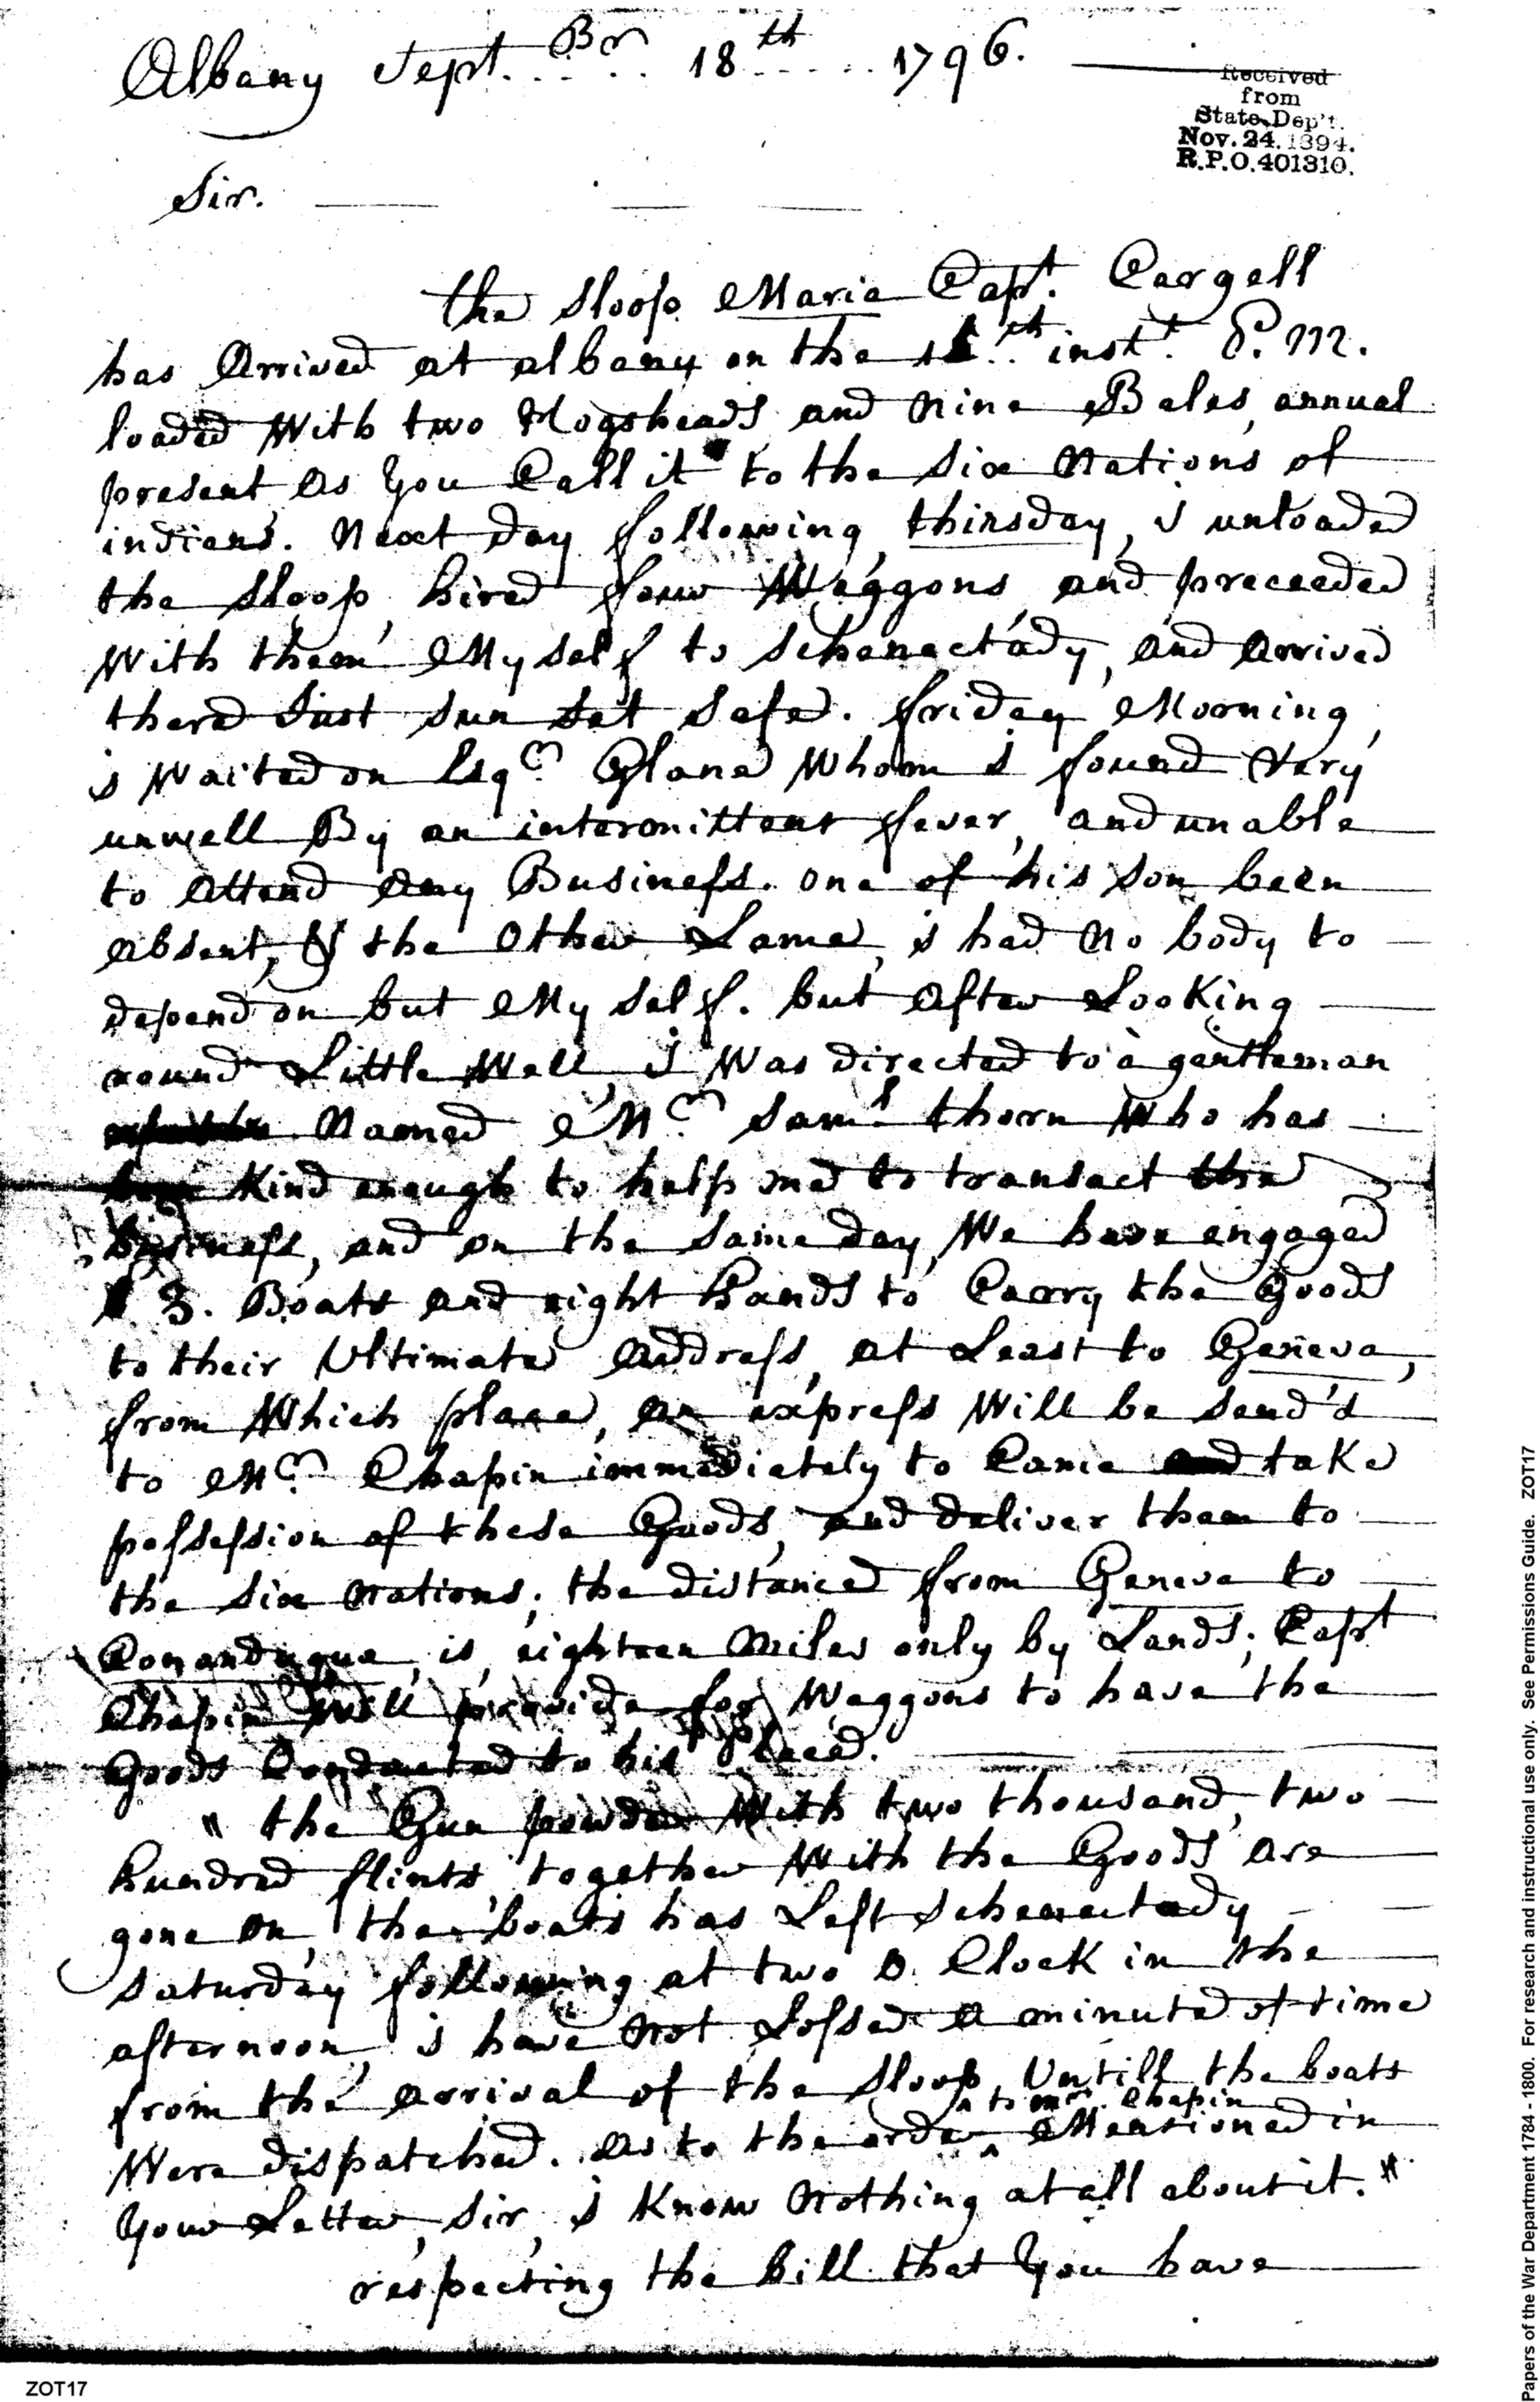 Albany Sept. Br 18th 1796.
Received
from
State Dep't.
Nov. 24. 1894.
R.P.O. 401310.
Sir.
the Sloop Maria Capt. Cargell
has Arrived at albany on the th inst. P.M.
loaded With two Hogsheads and Nine Bales, annual
present as you Call it to the Six Nations of
indians. Next day following, thirsday, i unloaded
the Sloop, hired four Waggons, and preceeded
With them My Self to Schenactady, and Arrived
there Just sun set Safe. friday Morning,
i Waited on Esqr. Glane Whom i found Very
unwell By an intermittent fever, and unable
to Attend any Business. one of his son been
absent, & the Other Lame, i had No body to
depend on but My Self. but after Looking
round Little Well, i Was directed to a gentleman
Named Mr. Saml. thorn Who has
been Kind enough to help me to transact the
business, and on the same day, We have engaged
3. Boats and eight hands to Carry the Goods
to their Ultimate Address, at Least to Geneva,
from Which place, an express Will be send'd
to Mr. Chapin immediately to Came and take
possession of these Goods, and deliver them to
the Six Nations; the distance from Geneva to
Conandugua, is, eighteen Miles only by Lands; Capt
Chapin Will provide for Waggons to have the
Goods Conducted to his place.
" the Gun powder With two thousand, two
hundred flints, together With the Goods are
gone on, the boats has Left Schenactady
Saturday following at two O. Clock in the
afternoon, i have Not Lossed a minute of time
from the arrival of the Sloop, Untill the boats
to Mr. Chapin
Were dispatched. as to the order ^ Mentioned in
Your Letter, Sir, i Know Nothing at all about it. "
respecting the bill that You have
ZOT17
Papers of the War Department 1784 - 1800. For research and instructional use only. See Permissions Guide. ZOT17